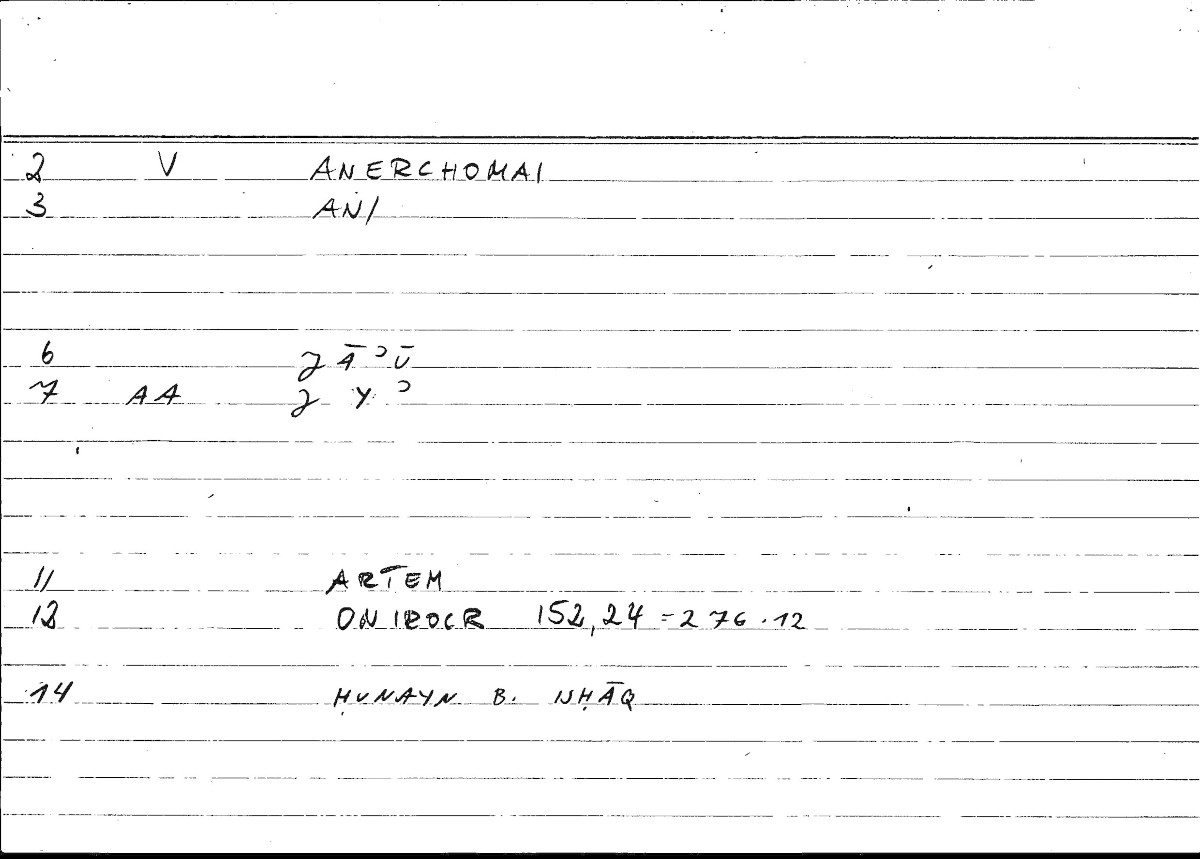 2 V ANERCHOMAI
3 ANI
6 J Ā ʾ Ū
7 AA J Y ʾ
11 ARTEM
12 ONIROCR 152,24 = 276.12
14 ḤUNAYN B. ISḤĀQ